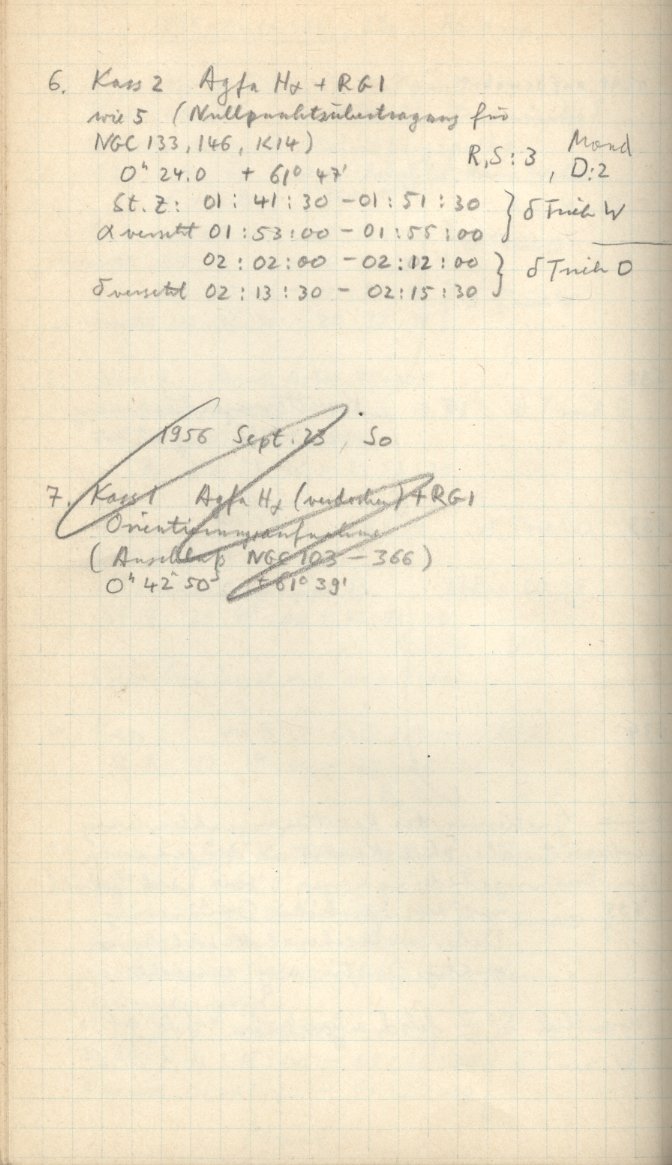 6. Kass 2 Agfa Hα + RG1
wie 5 (Nullpunktsübertragung für
NGC 133, 146, K14)
0ʰ 24.0 + 61° 47'
R,S:3, Mond D:2
St.Z: 01:41:30 - 01:51:30 } δ Trieb W
α versetzt 01:53:00 - 01:55:00
02:02:00 - 02:12:00 } δ Trieb O
δ versetzt 02:13:30 - 02:15:30
1956 Sept. 23, So
7. Kass 1 Agfa Hα (verdorben) + RG1
Orientierungsaufnahme
(Anschluß NGC 103 - 366)
0ʰ 42ᵐ 50ˢ + 61° 39'